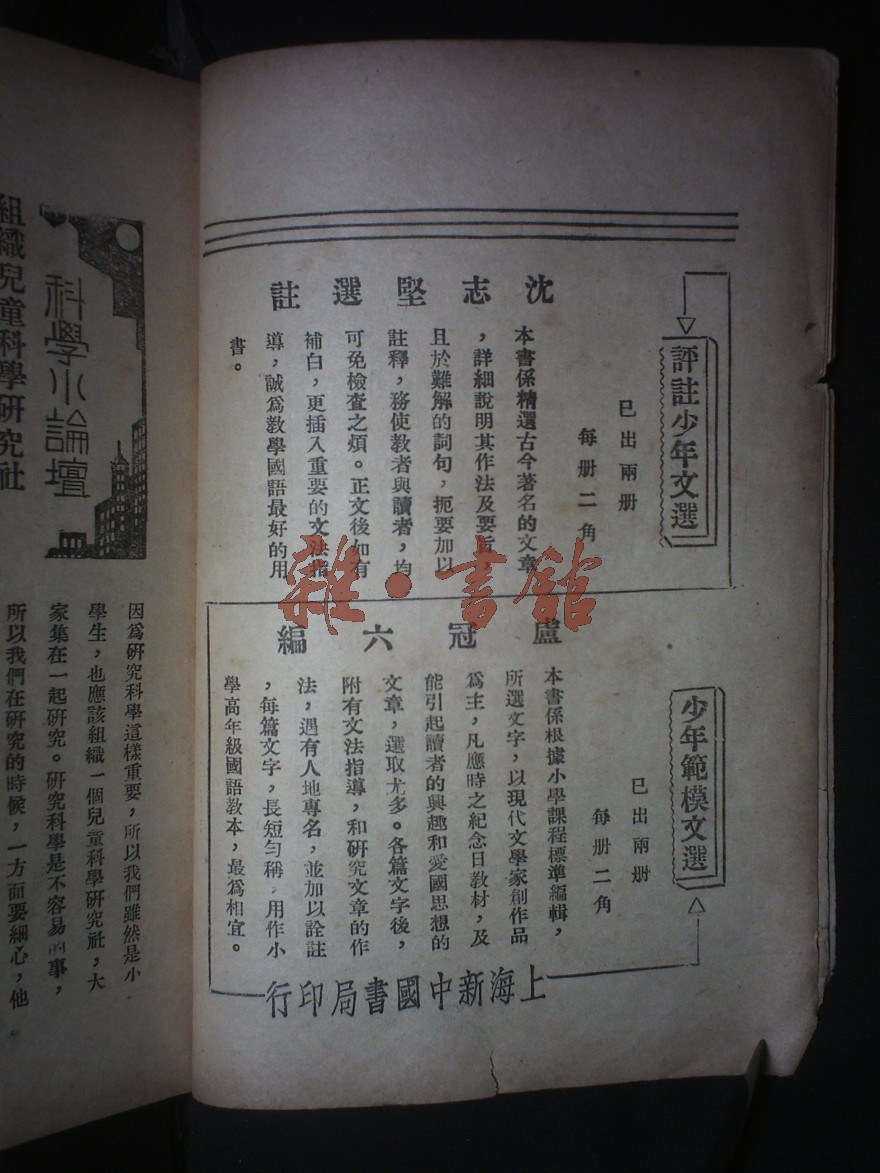 評註少年文選
已出兩册
每册二角
沈志堅選註
本書係精選古今著名的文章
，詳細說明其作法及要旨，
且於難解的詞句，扼要加以
註釋，務使教者與讀者，均
可免檢查之煩。正文後如有
補白，更插入重要的文法指
導，誠爲教學國語最好的用
書。
少年範模文選
已出兩册
每册二角
盧冠六編
本書係根據小學課程標準編輯，
所選文字，以現代文學家創作品
爲主，凡應時之紀念日教材，及
能引起讀者的興趣和愛國思想的
文章，選取尤多。各篇文字後，
附有文法指導，和研究文章的作
法，遇有人地專名，並加以詮註
，每篇文字，長短勻稱，用作小
學高年級國語教本，最爲相宜。
上海新中國書局印行
雜·書館
科學小論壇
組織兒童科學研究社
因爲研究科學這樣重要，所以我們雖然是小
學生，也應該組織一個兒童科學研究社，大
家集在一起研究。研究科學是不容易的事，
所以我們在研究的時候，一方面要細心，他